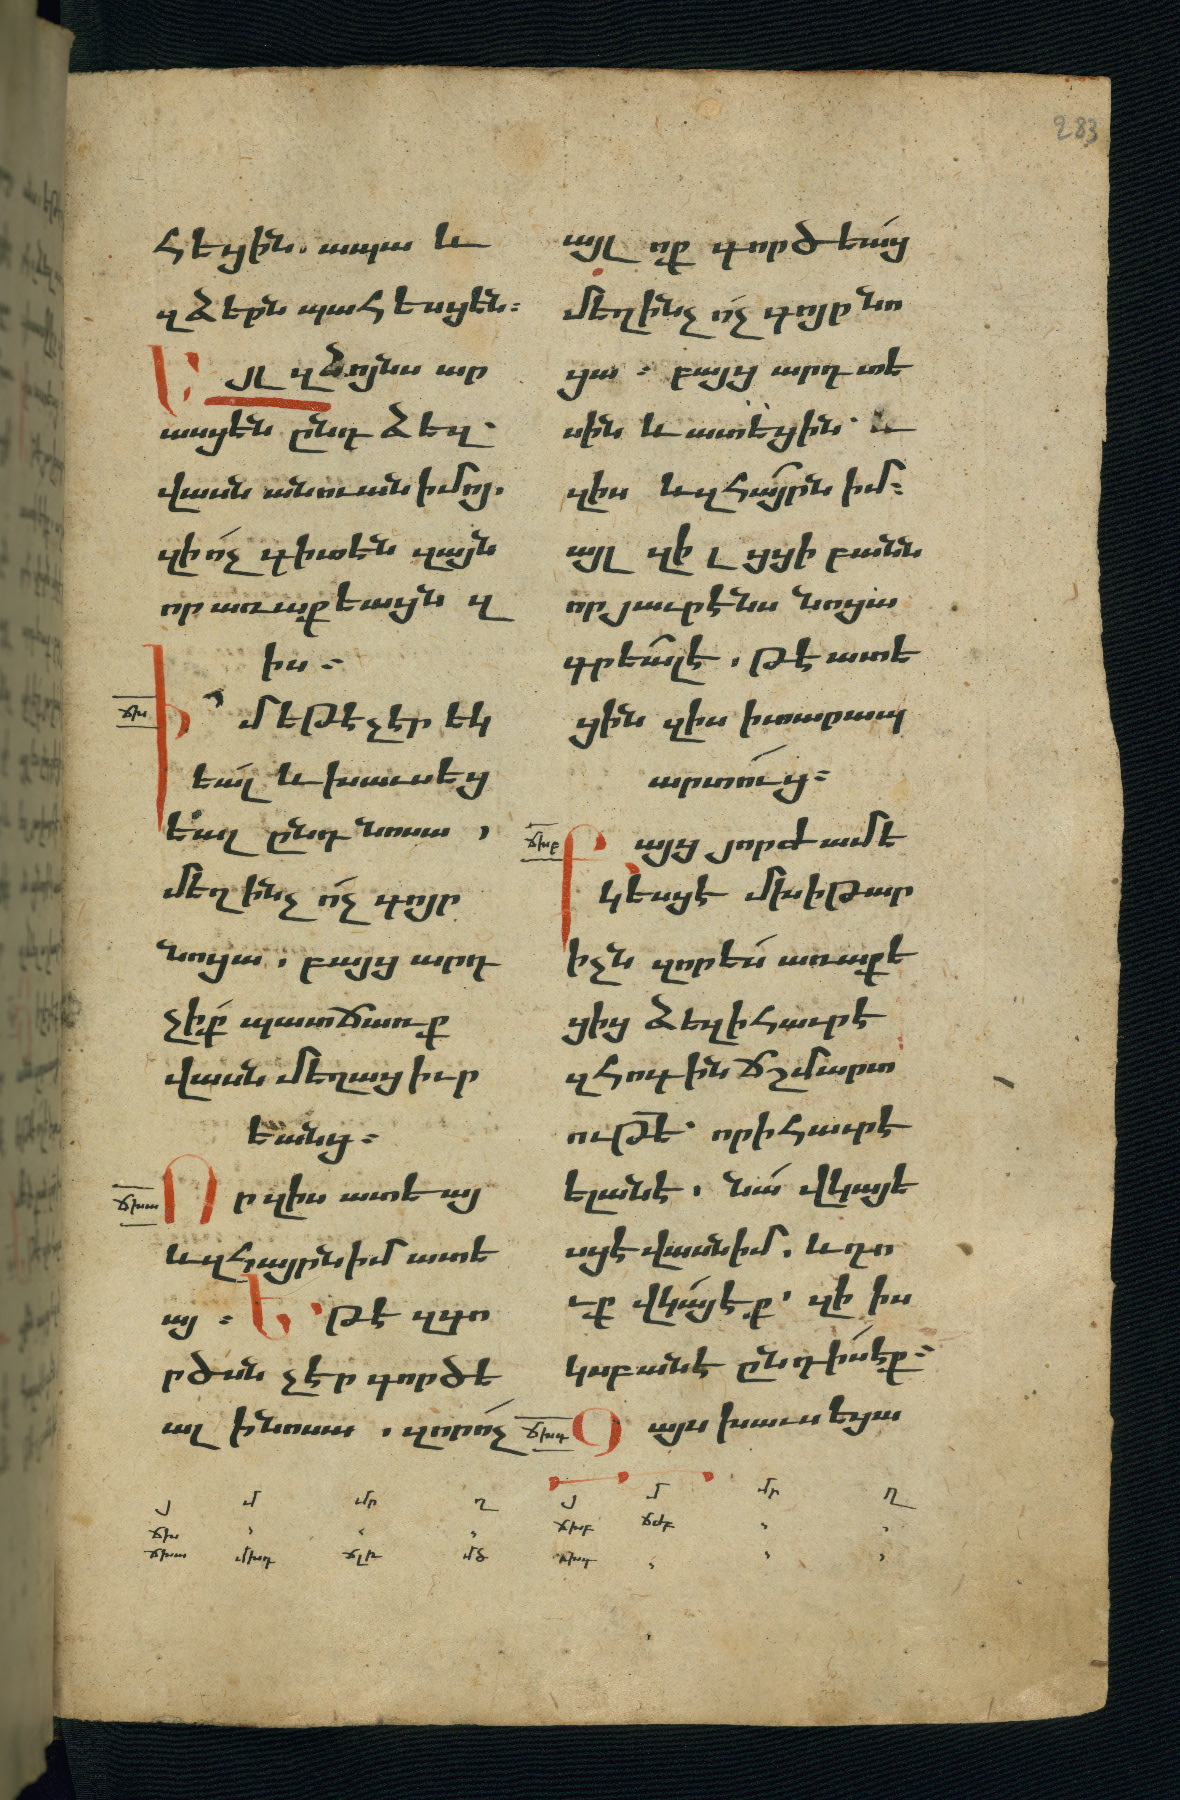 283
հեցին. ապա և
զձերն պահեսցեն։
Այլ զնոյնս ար
ասցեն ընդ ձեզ՝
վասն անուան իմոյ.
զի ոչ գիտեն զայն
որ առաքեացն զ
իս։
ճխ
Իմ եթէ չէր եկ
եալ և խաւսեց
եալ ընդ նոսա,
մեղ ինչ ոչ գոյր
նոցա, բայց արդ
չիք պատճառք
վասն մեղաց իւր
եանց։
ճխա
Որ զիս ատեայ
և զհայրն իմ ատե
այ։ Եթէ զգո
րծսն չէր գործե
ալ ի նոսա, զոր ոչ
այլ ոք գործեաց
մեղ ինչ ոչ գոյր նո
ցա։ բայց արդ տե
սին և ատեցին՝ և
զիս և զհայրն իմ։
այլ զի լցցի բանն
որ յաւրէնս նոցա
գրեալ է, թէ ատե
ցին զիս ի տարապ
արտուց։
ճխբ
Բայց յորժամ ե
կեսցէ մխիթար
իչն զոր ես առաքե
ցից ձեզ ի հաւրէ
զհոգին ճշմարտ
ութե՝ որ ի հաւրէ
ելանէ, նա վկայե
սցէ վասն իմ. և դո
ւք վկայէք՝ զի իս
կզբանէ ընդ իս էք։
ճխգ
Զայս խաւսեցա
յ մ մր ղ
ճխ
ճխա մխդ մձ
յ մ մր ղ
ճխբ ճժբ
ճխգ